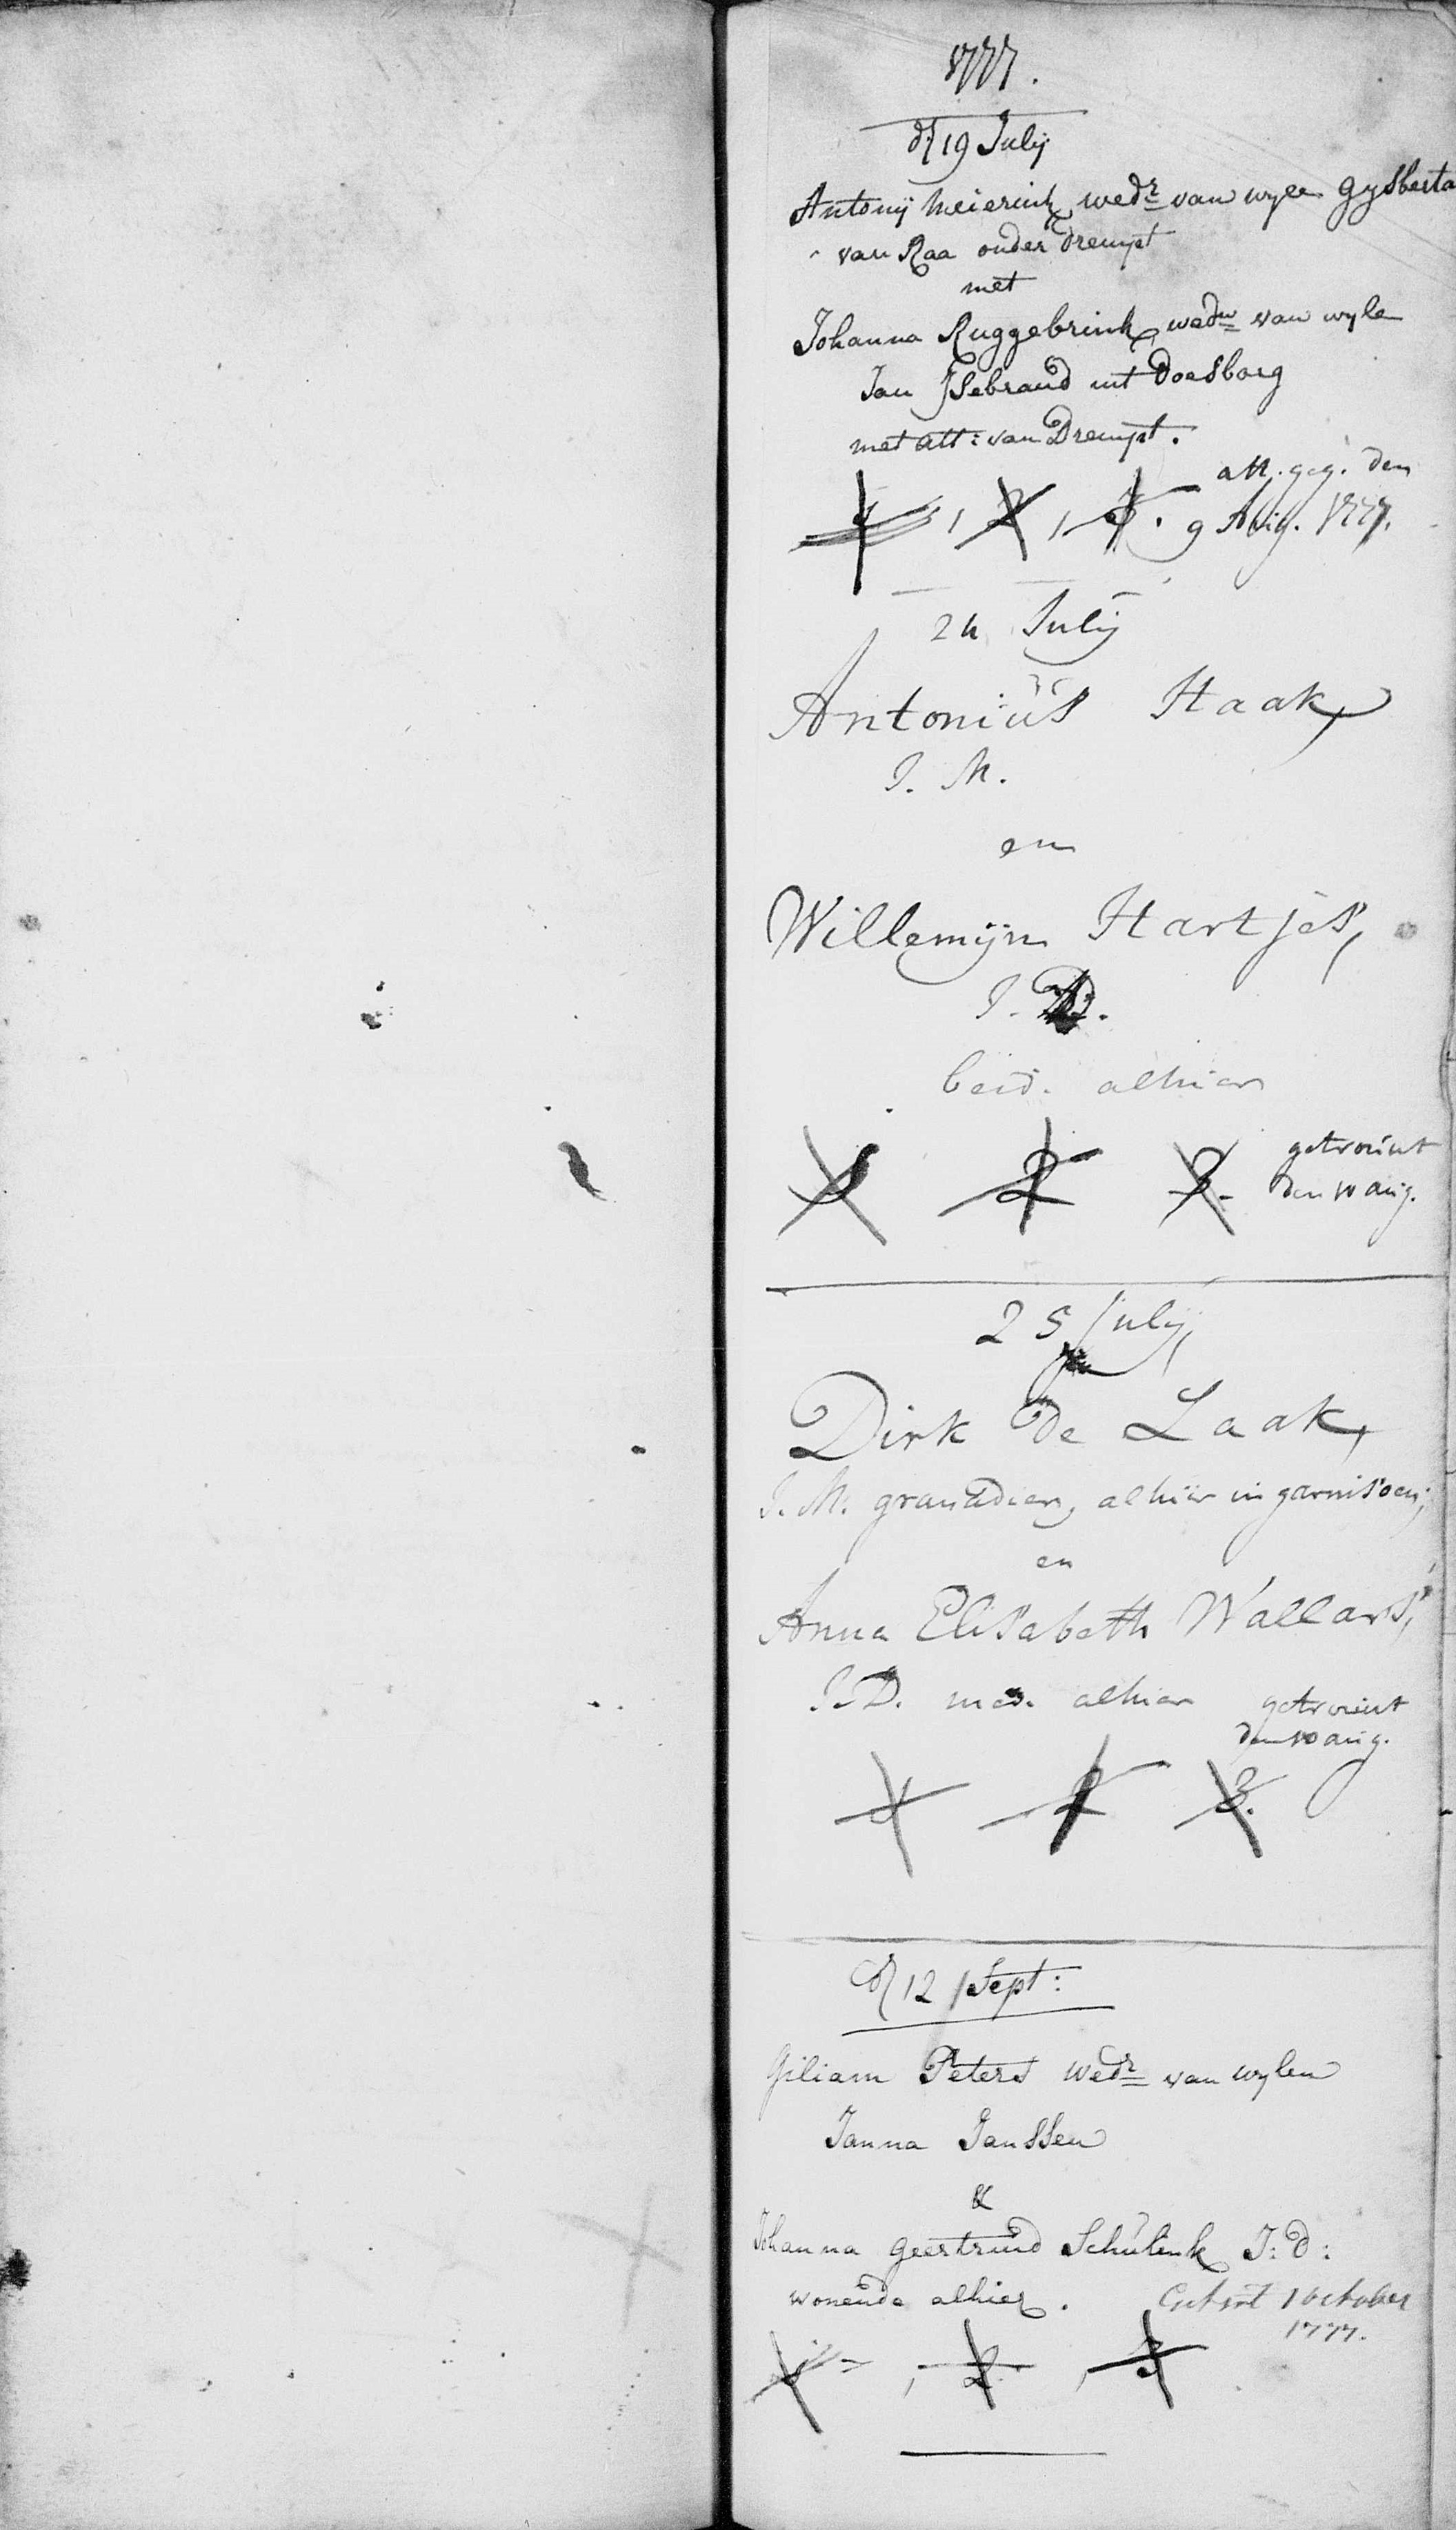 1777.
d 19 Julij
Antonij Meierink wedr van wyle Gysberta
van Raa onder Drempt
met
Johanna Ruggebrink wedw van wyle
Jan IJsebrand uit Doesborg
met att: van Drempt.
1, 2, 3. att. geg. den
9 Aug. 1777.
24 Julij
Antonius Haak,
J. M.
en
Willemijn Hartjes,
J. D.
beid. alhier
1 2 3. getrouwt
den 10 aug.
25 Julij,
Dirk de Laak,
J. M. granadier, alhier in garnisoen;
en
Anna Elisabeth Wallars,
J. D. mede alhier getrouwt
den 10 aug.
1 2 3.
d 12 Sept:
Giliam Peters wedr van wylen
Janna Janssen
&
Johanna Geertruid Schulink J: D:
wonende alhier. Getrout 1 October
1777.
1, 2, 3